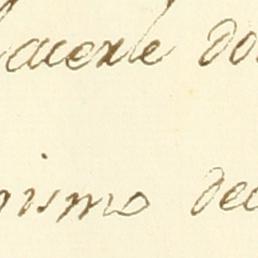 hacerle do
mismo dec